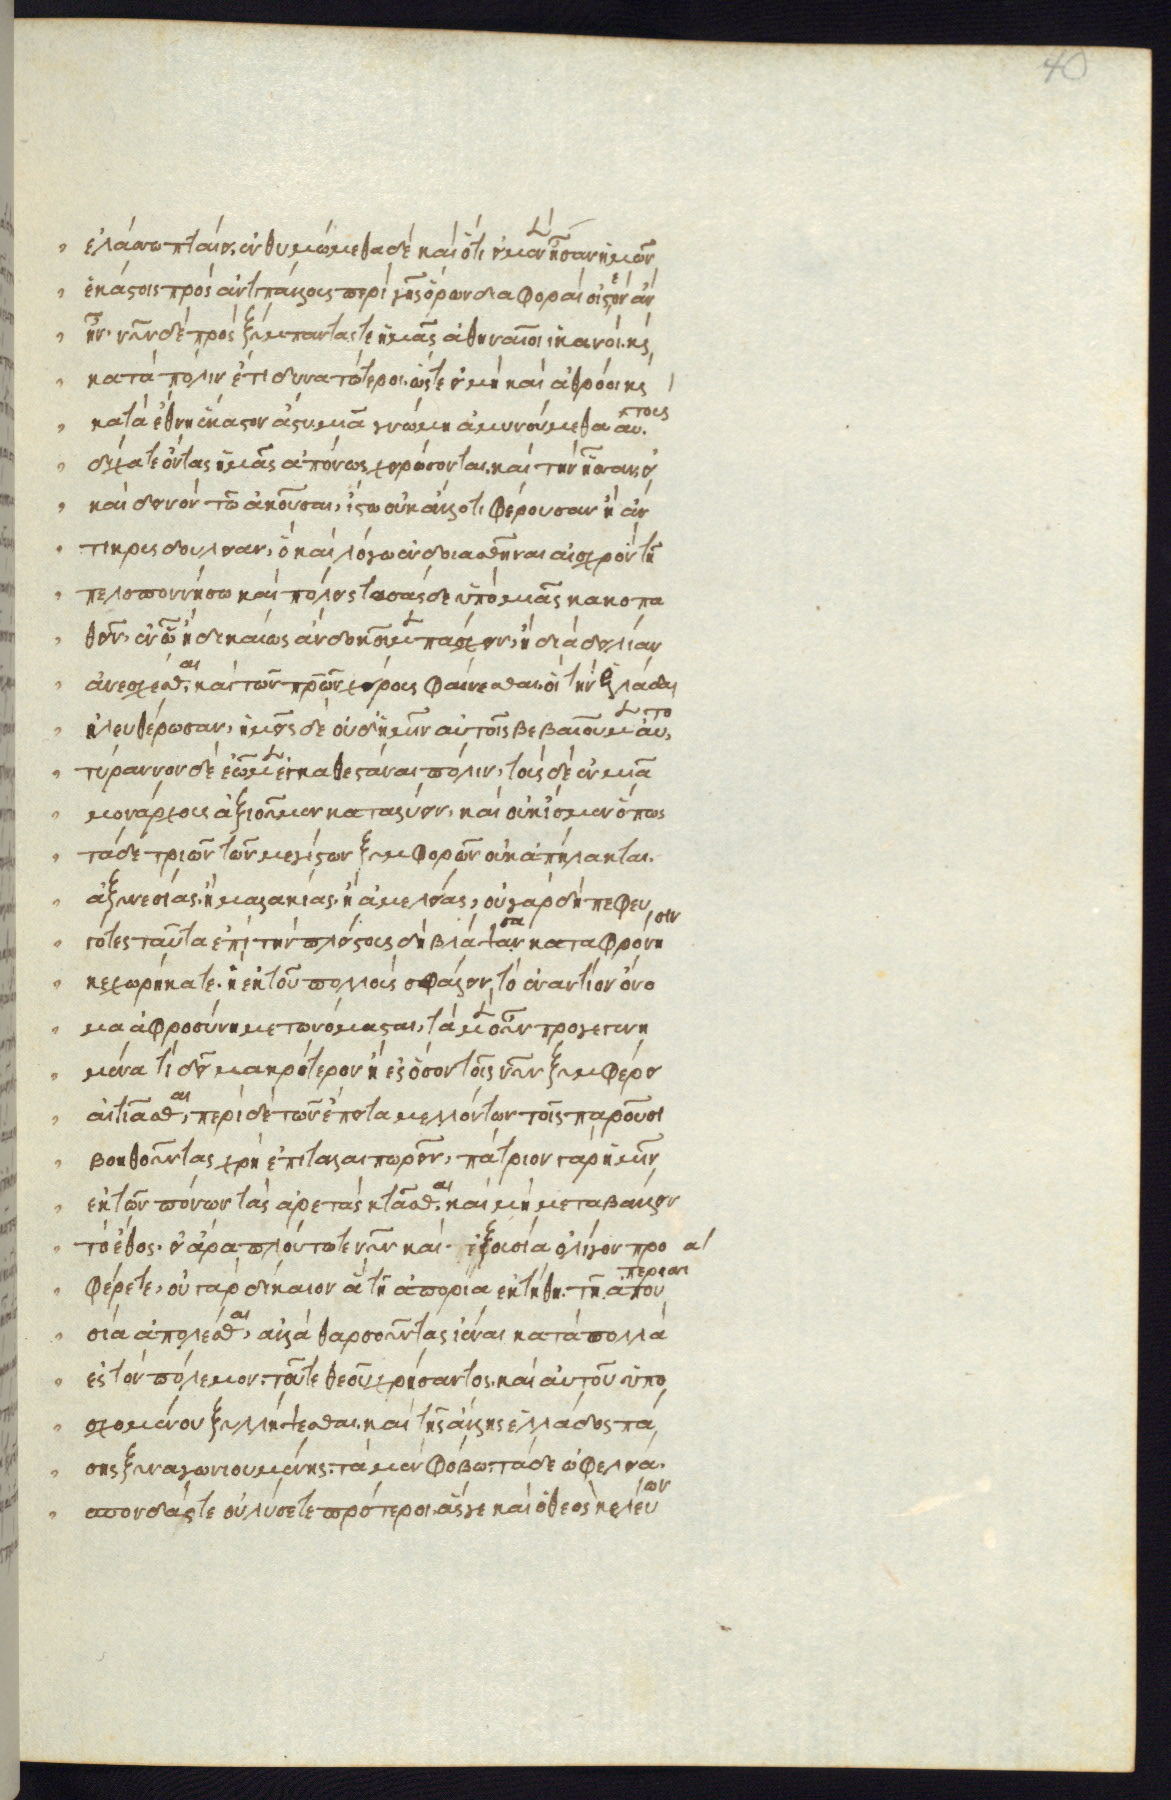 ἐλάσσω πταίει, ἐνθυμώμεθα δὲ καὶ ὅτι εἰ μὲν ἦσαν ἡμῶν
ἑκάστοις πρὸς ἀντιπάλους περὶ γῆς ὅρων διαφοραὶ οἰστὸν ἂν
ἦν. νῦν δὲ πρὸς ξύμπαντάς τε ἡμᾶς ἀθηναῖοι ἱκανοὶ. κ(αὶ)
κατὰ πόλιν ἔτι δυνατώτεροι. ὥστε εἰ μὴ καὶ ἀθρόοι κ(αὶ)
κατὰ ἔθνη ἕκαστον ἄστυ. μιᾶ γνώμη ἀμυνούμεθα αὐτοὺς.
δίχα τε ὄντας ἡμᾶς ἀπόνως χειρώσονται. καὶ τὴν ἧσσαν. εἰ
καὶ δεινόν τω ἀκοῦσαι, ἴστω οὐκ ἄλλό τι φέρουσαν ἢ ἄν
τικρυς δουλείαν, ὃ καὶ λόγω ἐνδοιασθῆναι αἰσχρὸν τῆ
πελοποννήσω καὶ πόλεις τοσάσδε ὑπὸ μιᾶς κακοπα
θεῖν, ἐν ᾧ ἢ δικαίως ἂν δοκοῖμεν πάσχειν, ἢ διὰ δειλίαν
ἀνέχεσθαι. καὶ τῶν πρῶν χείρους φαίνεσθαι, οἳ τὴν ἑλλάδα
ἠλευθέρωσαν, ἡμεῖς δὲ οὐδ᾽ ἡμῖν αὐτοῖς βεβαιοῦμεν αὐτὸ,
τύραννον δὲ ἐῶμεν ἐγκαθεστάναι πόλιν, τοὺς δὲ ἐν μιᾶ
μονάρχους ἀξιοῦμεν καταλύειν, καὶ οὐκ ἴσμεν ὅπως
τάδε τριῶν τῶν μεγίστων ξυμφορῶν οὐκ ἀπήλακται.
ἀξυνεσίας. ἢ μαλακίας. ἢ ἀμελείας, οὐ γὰρ δὴ πεφευ
γότες ταῦτα ἐπὶ τὴν πλείστους δὴ βλάψασαν καταφρόνησιν
κεχωρήκατε. ἣ ἐκ τοῦ πολλοὺς σφάλλειν, τὸ ἐναντίον ὄνο
μα ἀφροσύνη μετωνόμασται, τὰ μὲν οὖν προγεγενη
μένα τί δεῖ μακρότερον ἢ ἐς ὅσον τοῖς νῦν ξυμφέρει
αἰτιᾶσθαι, περὶ δὲ τῶν ἔπειτα μελλόντων τοῖς παροῦσι
βοηθοῦντας χρὴ ἐπιταλαιπωρεῖν, πάτριον γὰρ ἡμῖν
ἐκ τῶν πόνων τὰς ἀρετὰς κτᾶσθαι. καὶ μὴ μεταβάλλειν
τὸ ἔθος. εἰ ἄρα πλούτω τε νῦν καὶ ἐξουσία ὀλίγον προ
φέρετε, οὐ γὰρ δίκαιον ἃ τῆ ἀπορία ἐκτήθη. τῆ περιου
σία ἀπολέσθαι, ἀλλὰ θαρσοῦντας ἰέναι κατὰ πολλὰ
ἐς τὸν πόλεμον. τοῦ τε θεοῦ χρήσαντος. καὶ αὐτοῦ ὑπο
σχομένου ξυλλήψεσθαι. καὶ τῆς ἄλλης ἑλλάδος πά
σης ξυναγωνιουμένης. τὰ μὲν φόβω. τὰ δὲ ὠφελεία.
σπονδάς τε οὐ λύσετε πρότεροι. ἅς γε καὶ ὁ θεὸς κελεύων